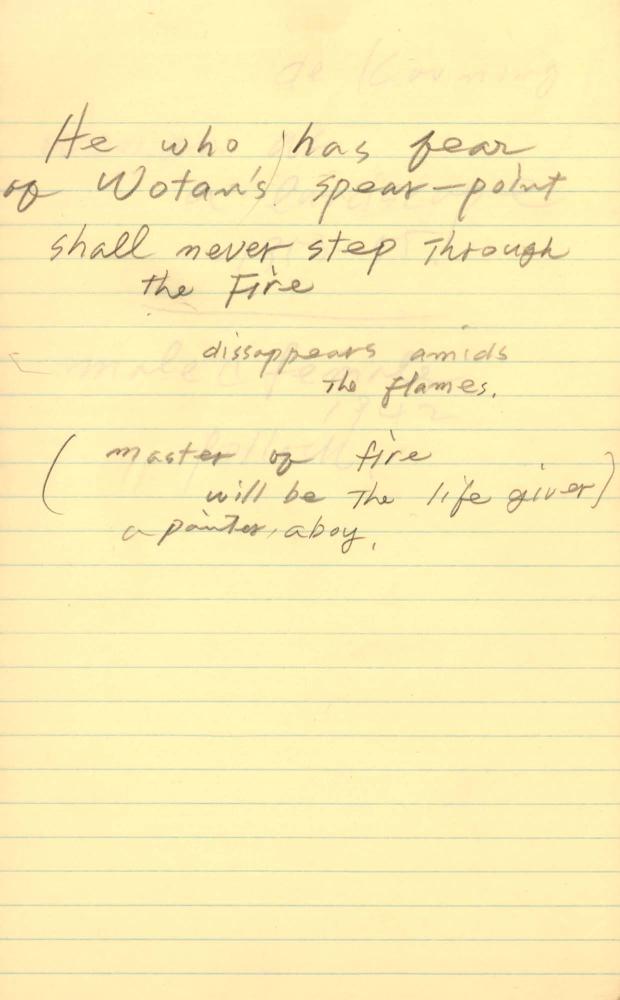 He who has fear
of Wotan's spear-point
shall never step Through
the Fire
dissappears amids
The flames.
( master of fire
will be The life giver )
a painter, a boy.